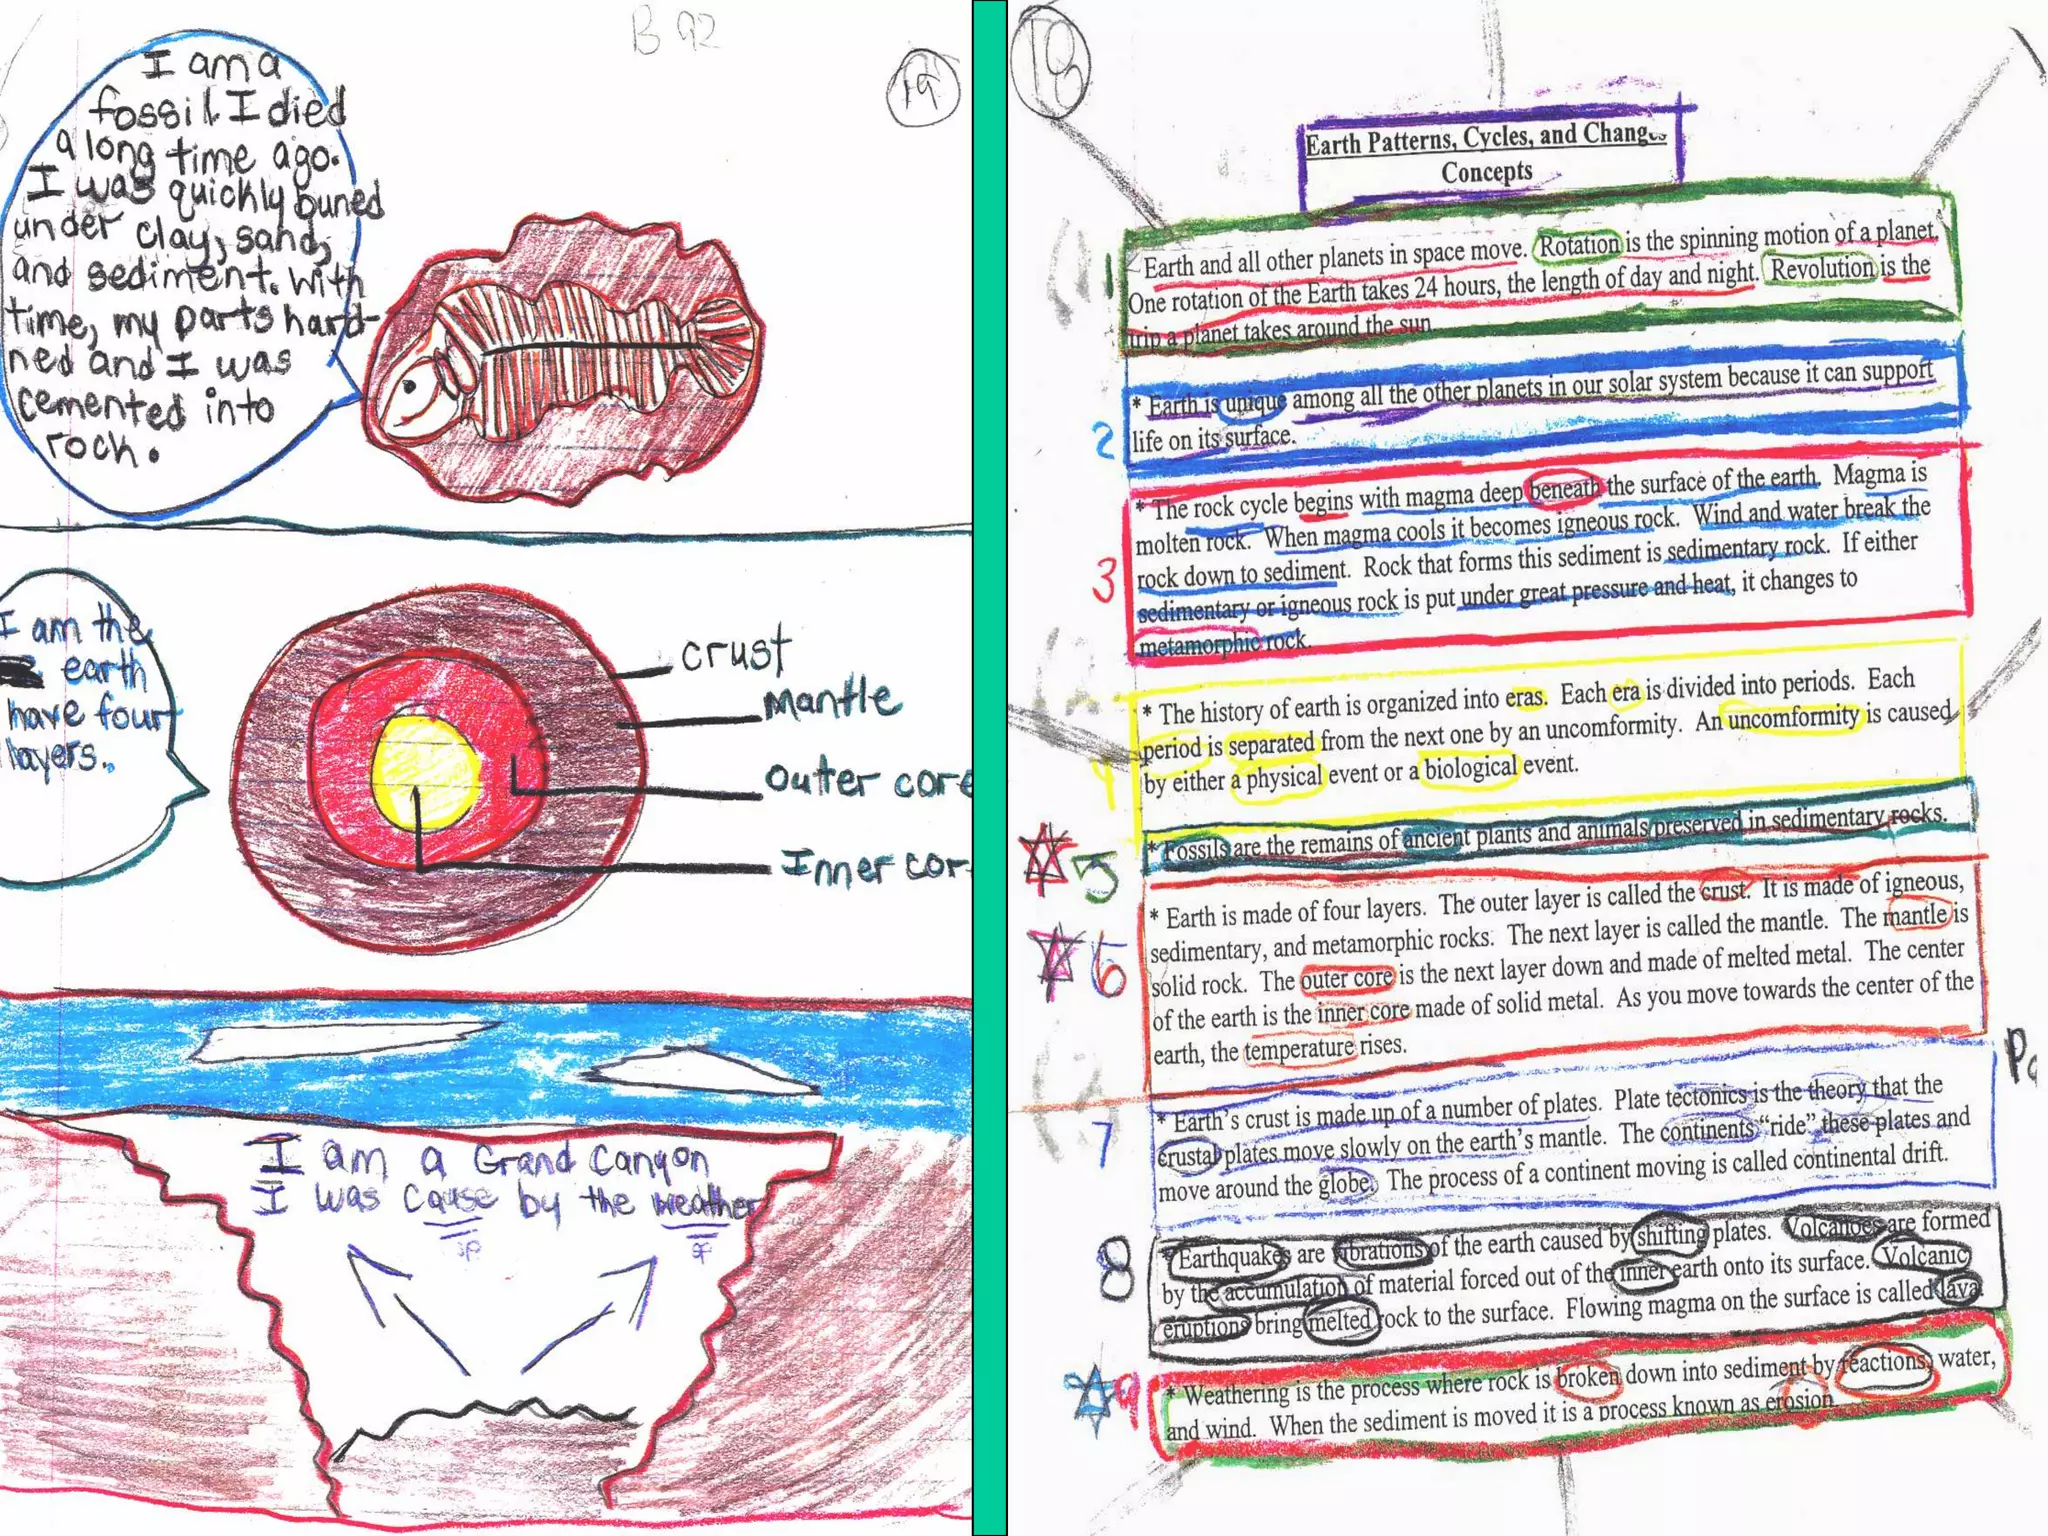 B 92
19
I am a
fossil. I died
a long time ago.
I was quickly buried
under clay, sand,
and sediment. With
time, my parts hard-
ned and I was
cemented into
rock.
I am the
earth
have four
layers.
crust
mantle
outer core
Inner cor
I am a Grand Canyon
I was cause by the weather
sp sp
18
Earth Patterns, Cycles, and Changes
Concepts
1
Earth and all other planets in space move. Rotation is the spinning motion of a planet.
One rotation of the Earth takes 24 hours, the length of day and night. Revolution is the
trip a planet takes around the sun
2
* Earth is unique among all the other planets in our solar system because it can support
life on its surface.
3
* The rock cycle begins with magma deep beneath the surface of the earth. Magma is
molten rock. When magma cools it becomes igneous rock. Wind and water break the
rock down to sediment. Rock that forms this sediment is sedimentary rock. If either
sedimentary or igneous rock is put under great pressure and heat, it changes to
metamorphic rock.
4
* The history of earth is organized into eras. Each era is divided into periods. Each
period is separated from the next one by an uncomformity. An uncomformity is caused
by either a physical event or a biological event.
5
* Fossils are the remains of ancient plants and animals preserved in sedimentary rocks.
6
* Earth is made of four layers. The outer layer is called the crust. It is made of igneous,
sedimentary, and metamorphic rocks. The next layer is called the mantle. The mantle is
solid rock. The outer core is the next layer down and made of melted metal. The center
of the earth is the inner core made of solid metal. As you move towards the center of the
earth, the temperature rises.
7
* Earth's crust is made up of a number of plates. Plate tectonics is the theory that the
crustal plates move slowly on the earth's mantle. The continents "ride" these plates and
move around the globe. The process of a continent moving is called continental drift.
8
* Earthquakes are vibrations of the earth caused by shifting plates. Volcanoes are formed
by the accumulation of material forced out of the inner earth onto its surface. Volcanic
eruptions bring melted rock to the surface. Flowing magma on the surface is called lava.
9
* Weathering is the process where rock is broken down into sediment by reactions, water,
and wind. When the sediment is moved it is a process known as erosion.